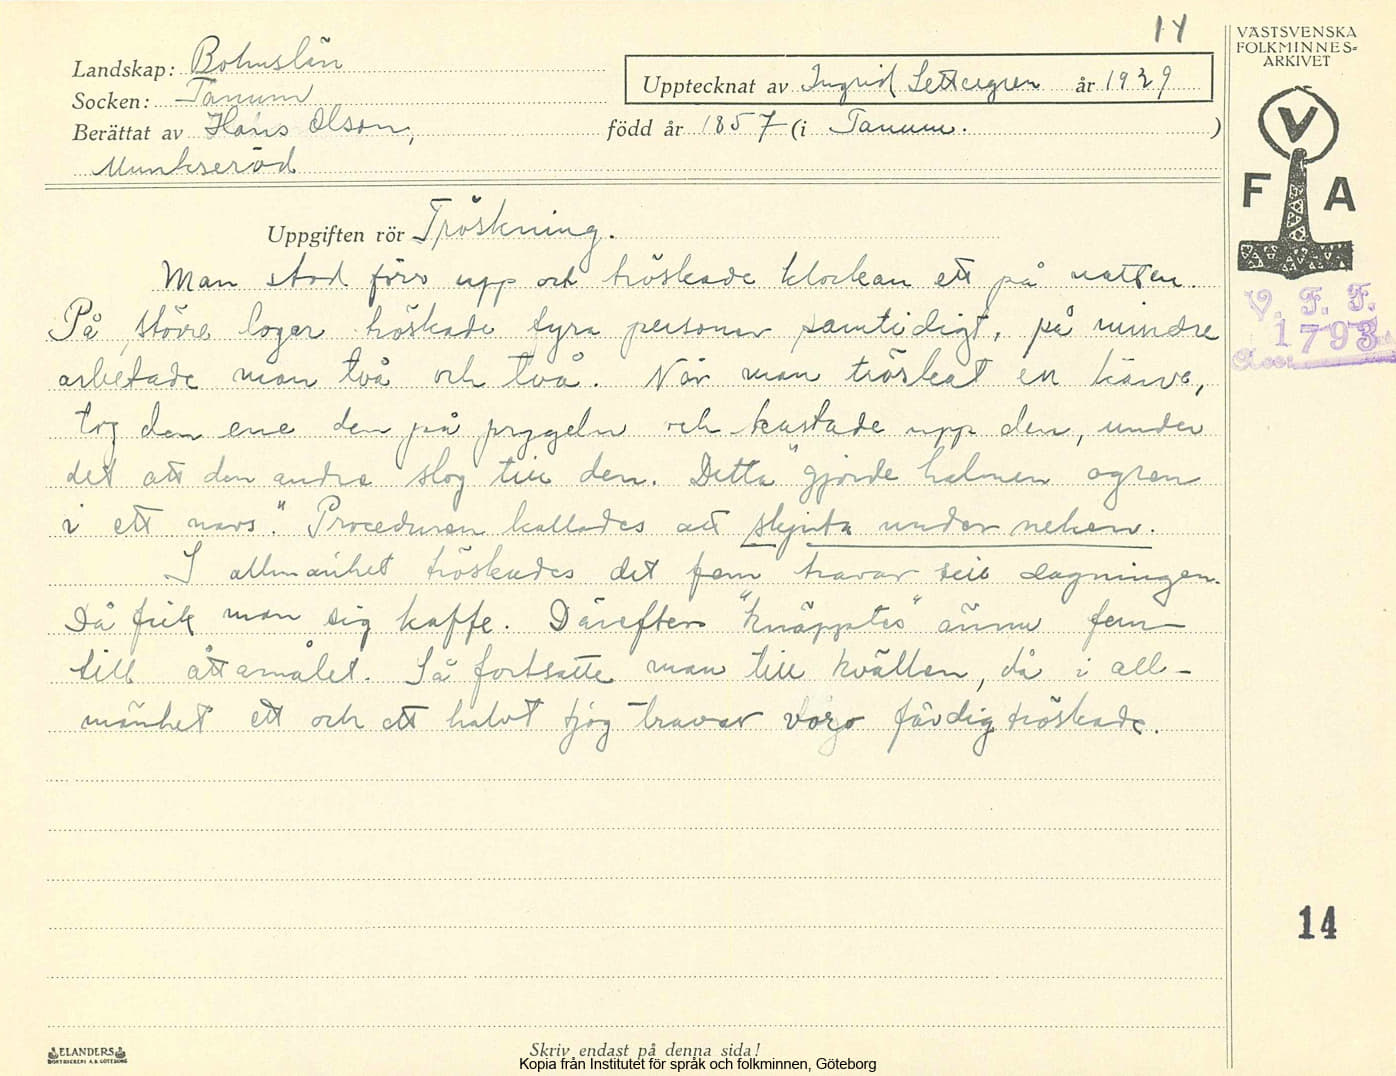 14
VÄSTSVENSKA
FOLKMINNES-
ARKIVET
Landskap: Bohuslän
Upptecknat av Ingrid Settergren år 1929
Socken: Tanum
Berättat av Hans Olson, född år 1857 (i Tanum. )
Munkseröd
V
F A
Uppgiften rör Tröskning.
Man stod förr upp och tröskade klockan ett på natten.
På större logar tröskade fyra personer samtidigt, på mindre
arbetade man två och två. När man tröskat en kärve,
tog den ene den på prygeln och kastade upp den, under
det att den andre slog till den. Detta "gjorde halmen ogren
i ett navs." Proceduren kallades att skjuta under neken.
I allmänhet tröskades det fem travar till dagningen.
Då fick man sig kaffe. Därefter "knäpptes" ännu fem
till åttamålet. Så fortsatte man till kvällen, då i all-
mänhet ett och ett halvt tjog travar voro färdigtröskade.
V. F. F.
1793
Acc.
14
ELANDERS
BOKTRYCKERI A.B. GÖTEBORG
Skriv endast på denna sida!
Kopia från Institutet för språk och folkminnen, Göteborg